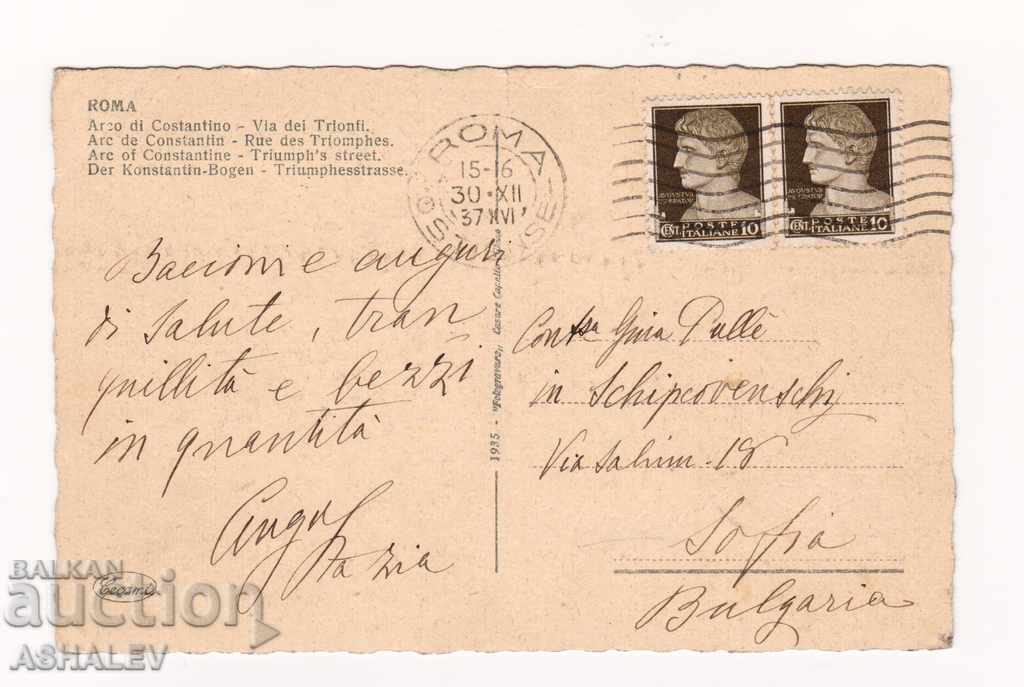 ROMA
Arco di Costantino - Via dei Trionfi.
Arc de Constantin - Rue des Triomphes.
Arc of Constantine - Triumph's street.
Der Konstantin-Bogen - Triumphesstrasse.
ROMA
15-16
30·XII
37 XVI
POSTE
ITALIANE
CENT. 10
POSTE
ITALIANE
CENT. 10
Bacioni e auguri
di salute, tran
quillità e bezzi
in quantità
zia
1935 - "Fotogravure" Cesare Capello
Contssa Gina Pullè
in Schipcovenschj
Via 18
Sofia
Bulgaria
BALKAN
auction
ASHALEV